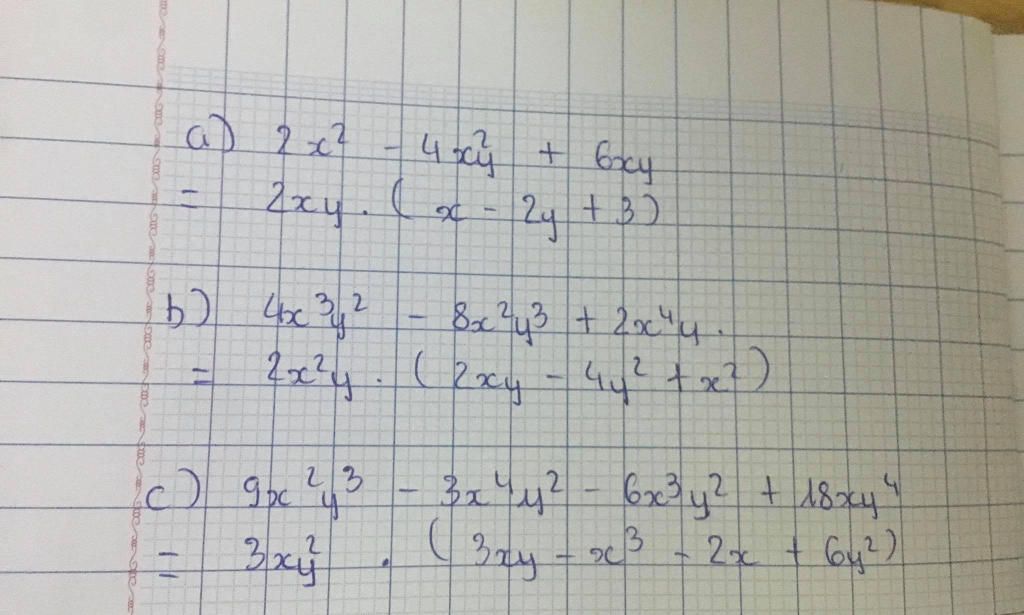 a) 2x² - 4xy² + 6xy
= 2xy . ( x - 2y + 3 )
b) 4x³y² - 8x²y³ + 2x⁴y .
= 2x²y . ( 2xy - 4y² + x² )
c) 9x²y³ - 3x⁴y² - 6x³y² + 18xy⁴
= 3xy² . ( 3xy - x³ - 2x + 6y² )